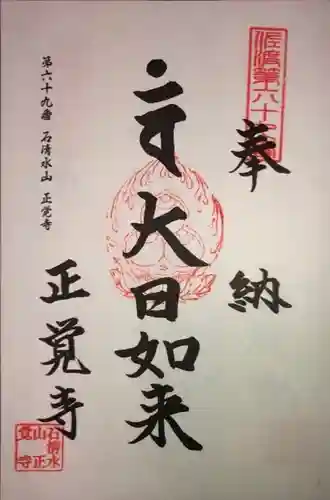 奉納
大日如来
第六十九番 石清水山 正覚寺
正覚寺
石清水
山正
覚寺